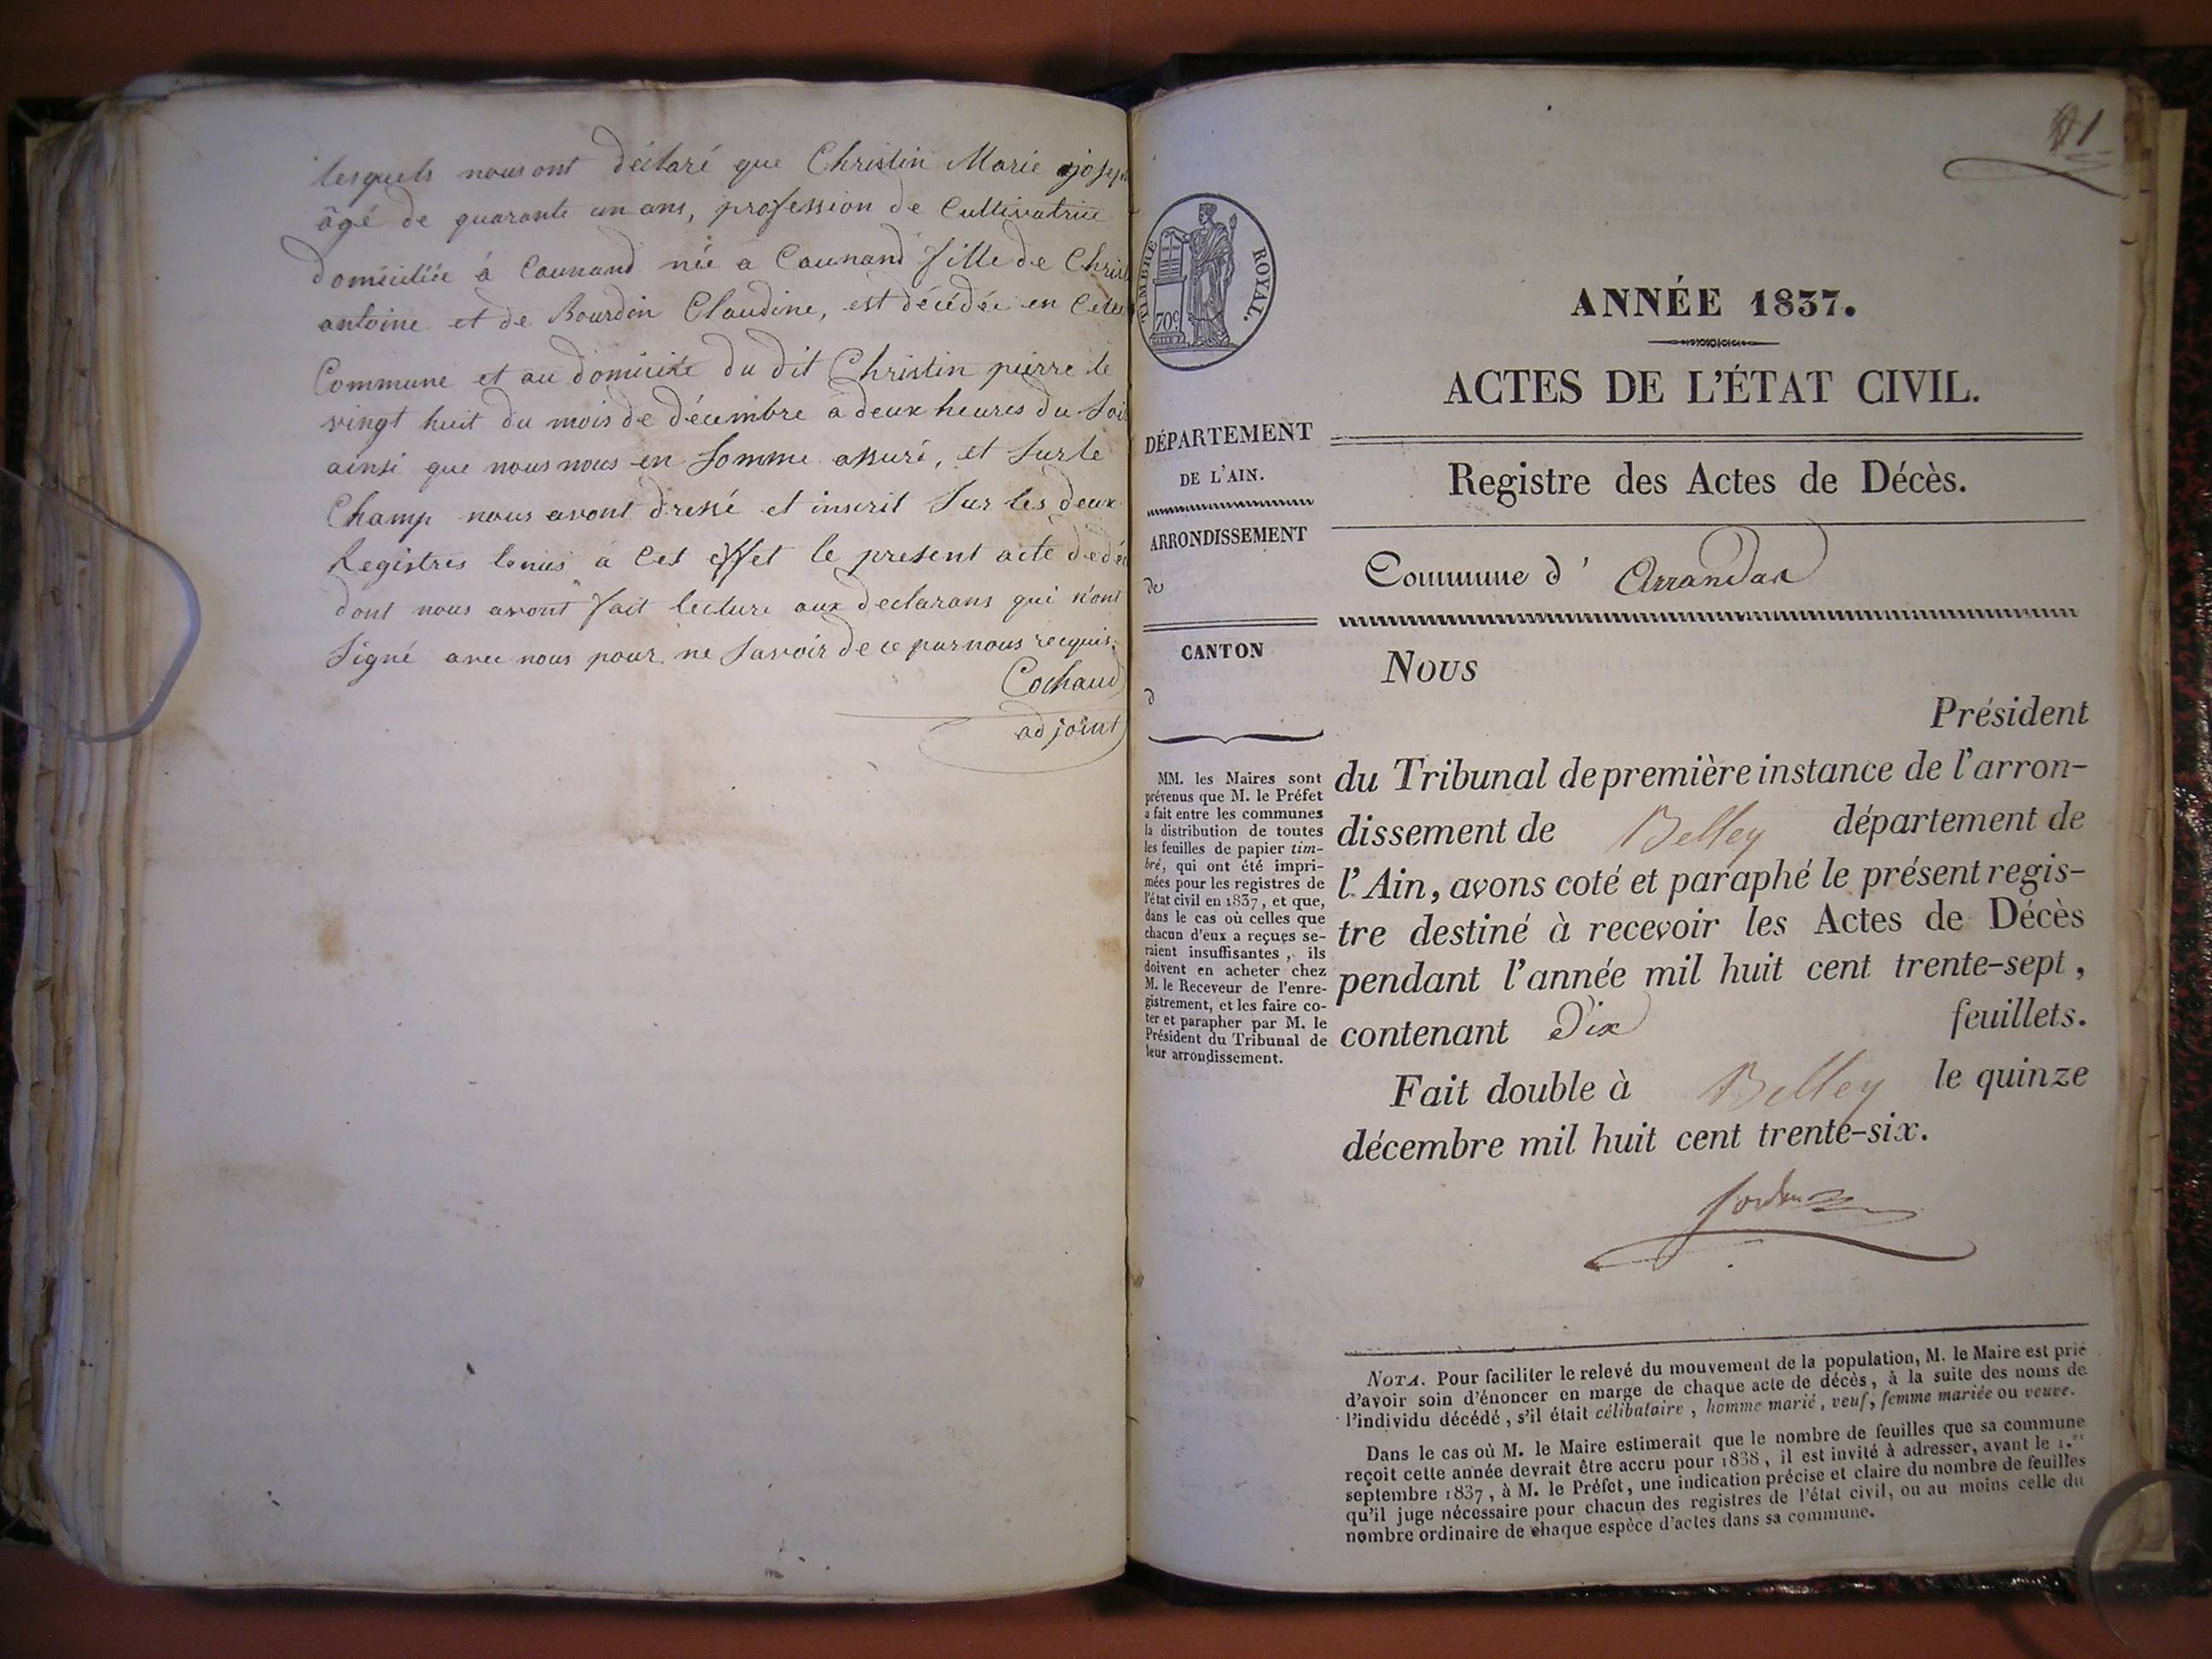 lesquels nous ont déclaré que Christin Marie josep
âgé de quarante un ans, profession de Cultivatrice
domiciliée à Caunand née a Caunand fille de Christ
antoine et de Bourdin Claudine, est décédée en Cette
Commune et au domicile du dit Christin pierre le
vingt huit du mois de décembre a deux heures du Soi
ainsi que nous nous en Somme assuré, et Sur le
Champ nous avont dressé et inscrit Sur les deux
Registres tenus a Cet effet le present acte de dé
dont nous avont fait lecture aux declarans qui n'ont
Signé avec nous pour ne Savoir de ce par nous requis.
Cochaud
adjoint
1
TIMBRE ROYAL.
70c
ANNÉE 1837.
ACTES DE L'ÉTAT CIVIL.
DÉPARTEMENT
DE L'AIN.
ARRONDISSEMENT
de
CANTON
d
MM. les Maires sont
prévenus que M. le Préfet
a fait entre les communes
la distribution de toutes
les feuilles de papier tim-
bré, qui ont été impri-
mées pour les registres de
l'état civil en 1837, et que,
dans le cas où celles que
chacun d'eux a reçues se-
raient insuffisantes, ils
doivent en acheter chez
M. le Receveur de l'enre-
gistrement, et les faire co-
ter et parapher par M. le
Président du Tribunal de
leur arrondissement.
Registre des Actes de Décès.
Commune d' Arrandas
Nous
Président
du Tribunal de première instance de l'arron-
dissement de Belley département de
l'Ain, avons coté et paraphé le présent regis-
tre destiné à recevoir les Actes de Décès
pendant l'année mil huit cent trente-sept,
contenant Dix feuillets.
Fait double à Belley le quinze
décembre mil huit cent trente-six.
NOTA. Pour faciliter le relevé du mouvement de la population, M. le Maire est prié
d'avoir soin d'énoncer en marge de chaque acte de décès, à la suite des noms de
l'individu décédé, s'il était célibataire, homme marié, veuf, femme mariée ou veuve.
Dans le cas où M. le Maire estimerait que le nombre de feuilles que sa commune
reçoit cette année devrait être accru pour 1838, il est invité à adresser, avant le 1.er
septembre 1837, à M. le Préfet, une indication précise et claire du nombre de feuilles
qu'il juge nécessaire pour chacun des registres de l'état civil, ou au moins celle du
nombre ordinaire de chaque espèce d'actes dans sa commune.